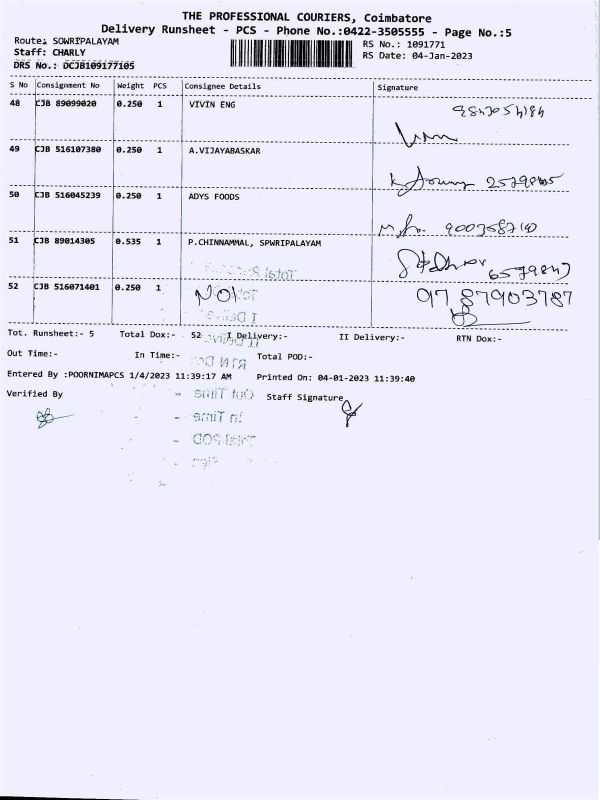 THE PROFESSIONAL COURIERS, Coimbatore
Delivery Runsheet - PCS - Phone No.:0422-3505555 - Page No.:5
Route: SOWRIPALAYAM
Staff: CHARLY
DRS No.: DCJB109177105
RS No.: 1091771
RS Date: 04-Jan-2023
S No Consignment No Weight PCS Consignee Details Signature
48 CJB 89099020 0.250 1 VIVIN ENG
49 CJB 516107380 0.250 1 A.VIJAYABASKAR
50 CJB 516045239 0.250 1 ADYS FOODS
9003587210
51 CJB 89014305 0.535 1 P.CHINNAMMAL, SPWRIPALAYAM
52 CJB 516071401 0.250 1
97 87903787
Tot. Runsheet:- 5 Total Dox:- 52 I Delivery:- II Delivery:- RTN Dox:-
Out Time:- In Time:- Total POD:-
Entered By :POORNIMAPCS 1/4/2023 11:39:17 AM Printed On: 04-01-2023 11:39:40
Verified By Staff Signature